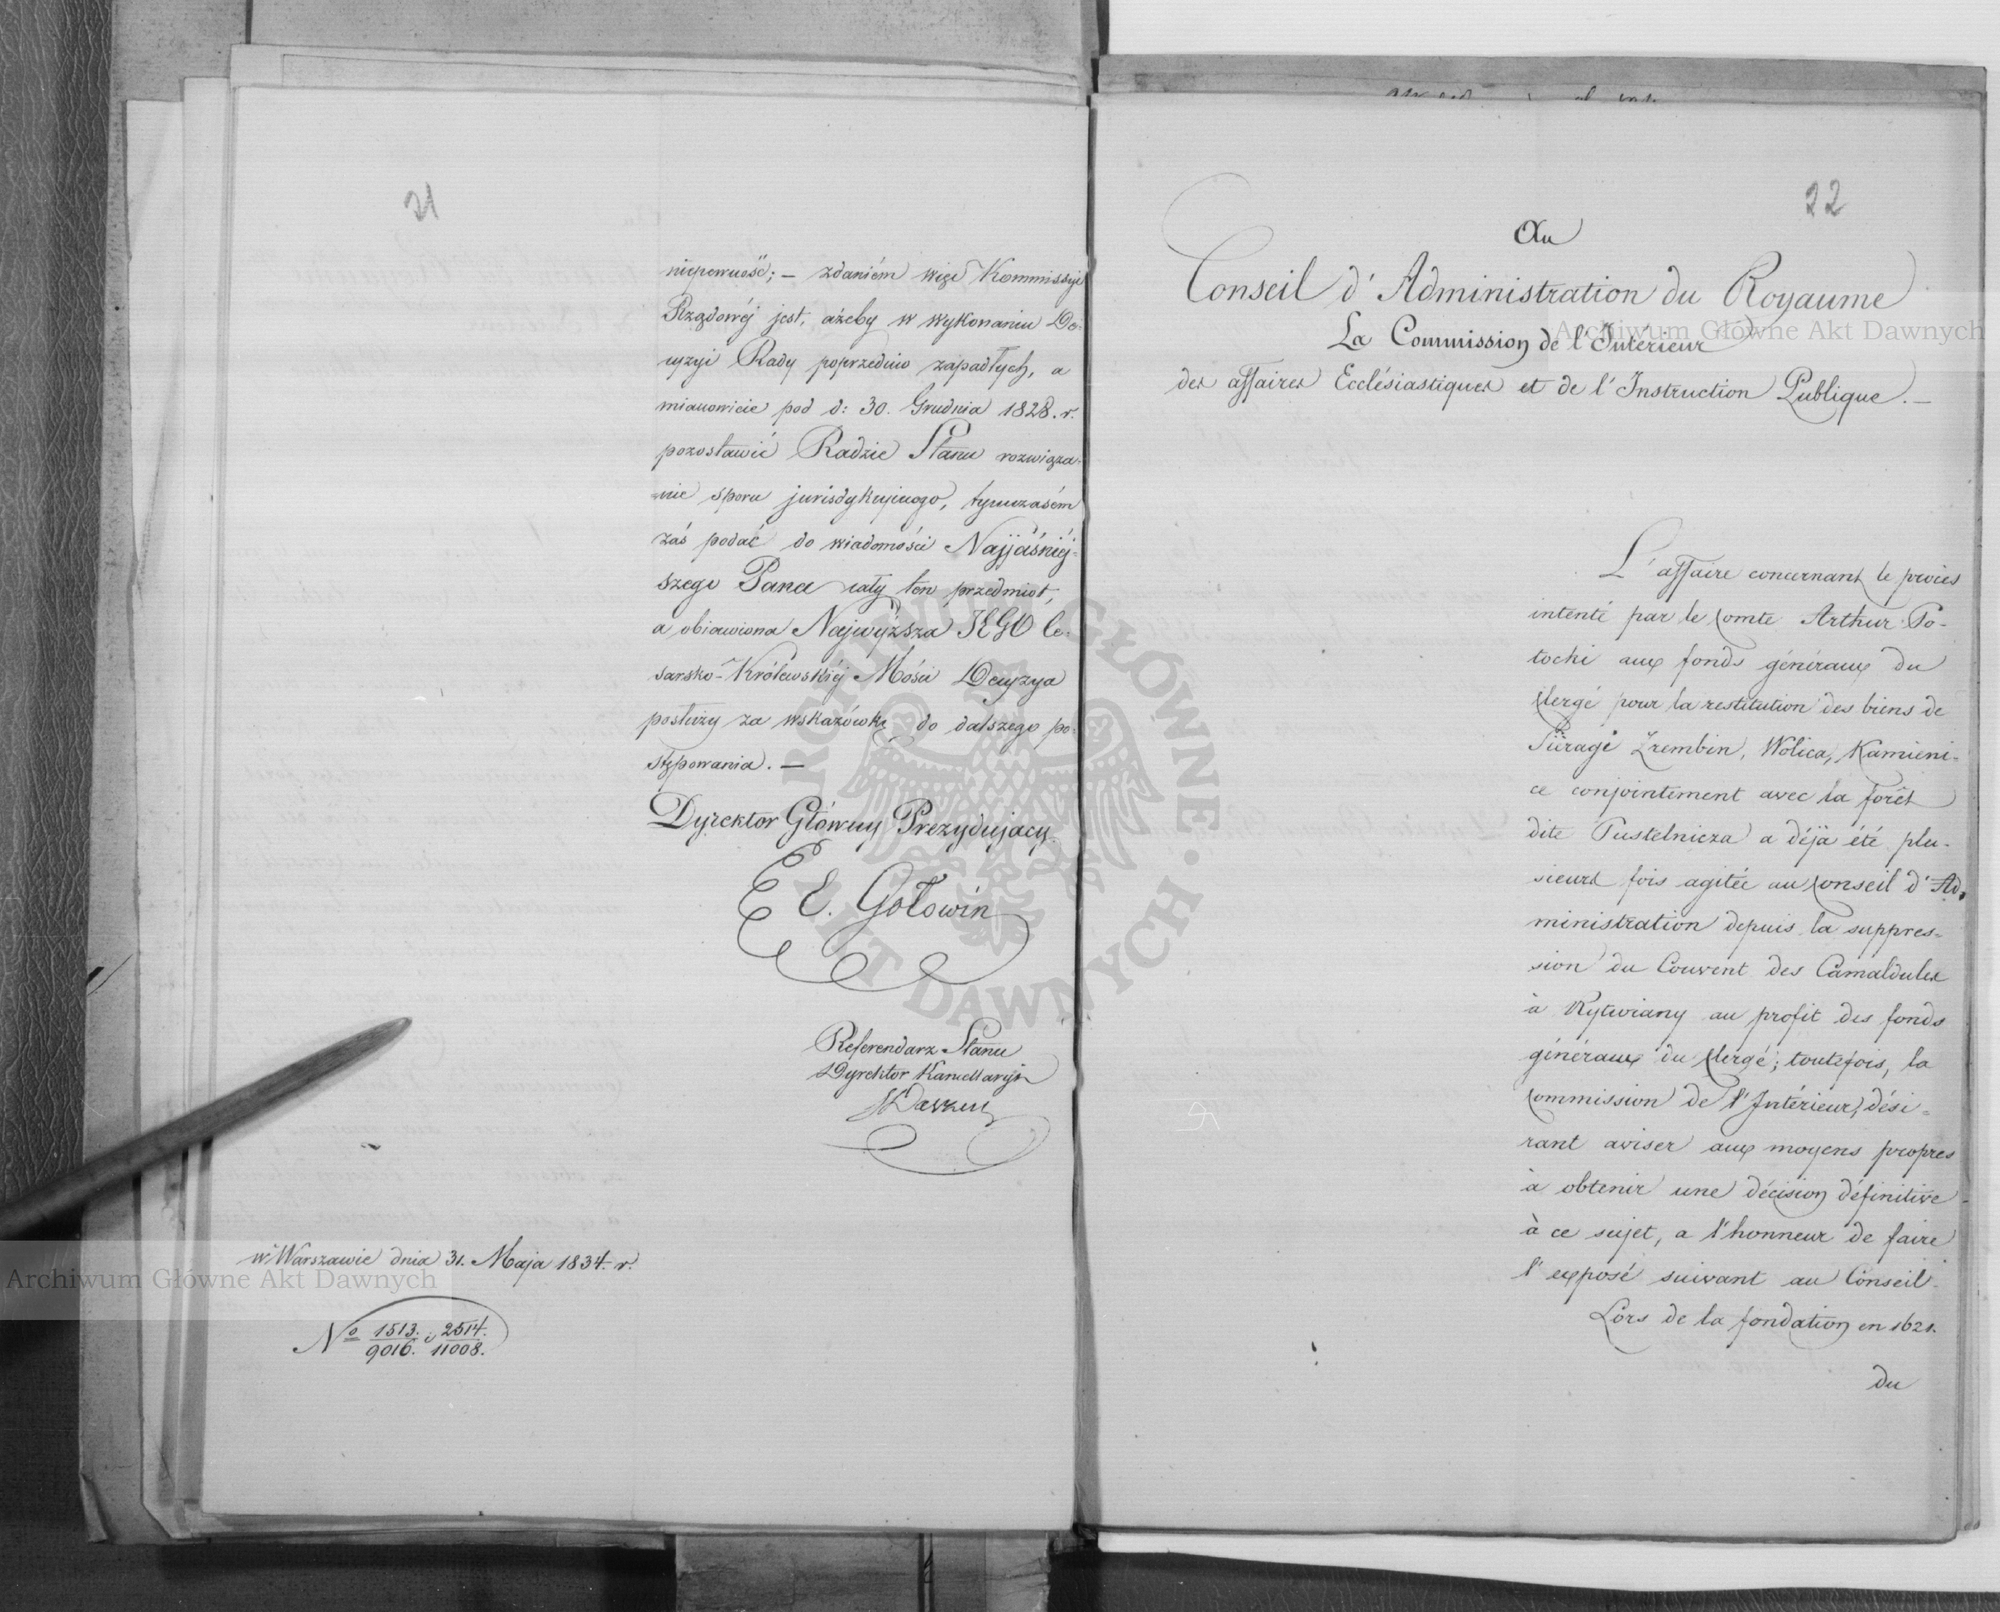 21
niepewność; — zdaniém więc Kommissyi
Rządowéj jest, ażeby w wykonaniu De-
cyzyi Rady poprzednio zapadłych, a
mianowicie pod d: 30. Grudnia 1828. r.
pozostawić Radzie Stanu rozwiąza-
nie sporu jurisdykcyjnego, tymczasém
zaś podać do wiadomości Najjaśniéj-
szego Pana cały ten przedmiot,
a objawiona Najwyższa JEGO Ce-
sarsko-Królewskiéj Mości Decyzya
posłuży za wskazówkę do dalszego po-
stępowania. —
Dyrektor Główny Prezydujący
E. Gołowin
Referendarz Stanu
Dyrektor Kancellaryi
w Warszawie dnia 31. Maja 1834. r.
No 1513./9016. i 2514./11008.
22
Au
Conseil d'Administration du Royaume
La Commission de l'Intérieur
des affaires Ecclésiastiques et de l'Instruction Publique. —
L'affaire concernant le procès
intenté par le Comte Arthur Po-
tocki aux fonds généraux du
Clergé pour la restitution des biens de
Zrembin, Wolica, Kamieni-
ce conjointement avec la forêt
dite Pustelnicza a déjà été plu-
sieurs fois agitée au Conseil d'Ad-
ministration depuis la suppres-
sion du Couvent des Camaldules
à Rytwiany au profit des fonds
généraux du Clergé; toutefois, la
Commission de l'Intérieur, dési-
rant aviser aux moyens propres
à obtenir une décision définitive
à ce sujet, a l'honneur de faire
l'exposé suivant au Conseil.
Lors de la fondation en 1621.
du
Archiwum Główne Akt Dawnych
Archiwum Główne Akt Dawnych
ARCHIWUM GŁÓWNE · AKT DAWNYCH ·